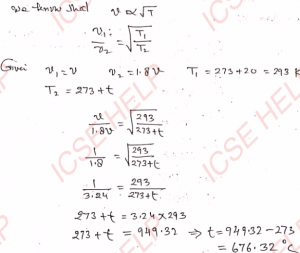 we know that v ∝ √T
v₁/v₂ = √(T₁/T₂)
Given v₁ = v v₂ = 1.8v T₁ = 273+20 = 293 K
T₂ = 273+t
v/1.8v = √(293/(273+t))
1/1.8 = √(293/(273+t))
1/3.24 = 293/(273+t)
273+t = 3.24×293
273+t = 949.32 ⇒ t = 949.32-273
= 676.32 °C
ICSE HELP
ICSE HELP
ICSE HELP